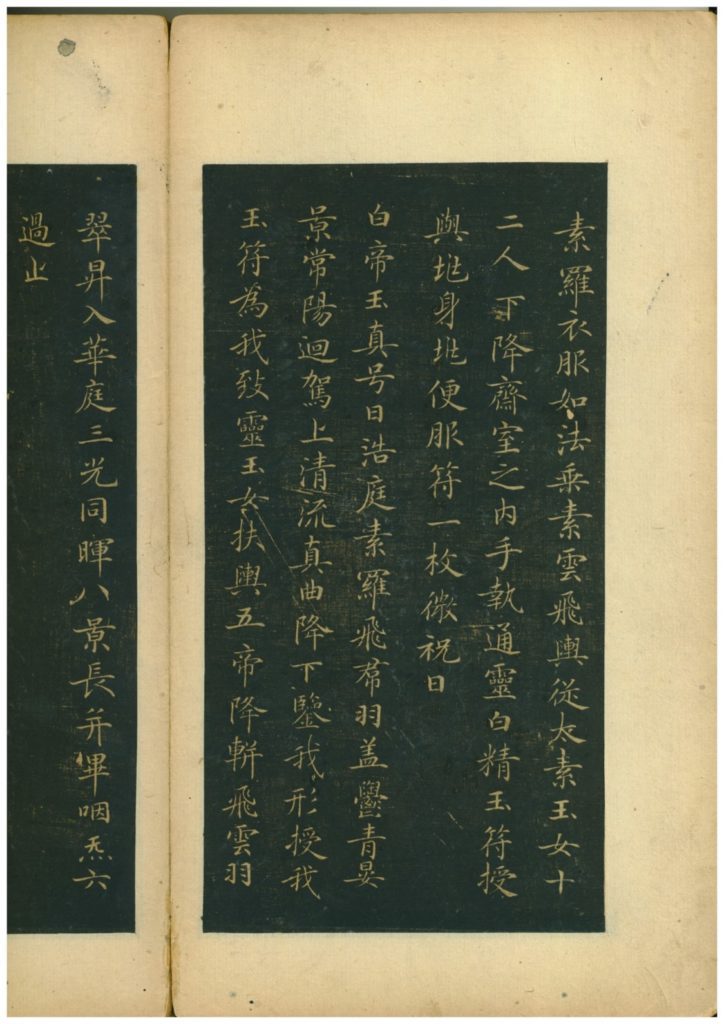 素羅衣服如法乗素雲飛輿従太素玉女十
二人下降齋室之内手執通靈白精玉符授
與兆身兆便服符一枚微祝曰
白帝玉真号曰浩庭素羅飛帬羽盖鬱青晏
景常陽迴駕上清流真曲降下鑒我形授我
玉符為我致靈玉女扶輿五帝降軿飛雲羽
翠昇入華庭三光同暉八景長并畢咽炁六
過止